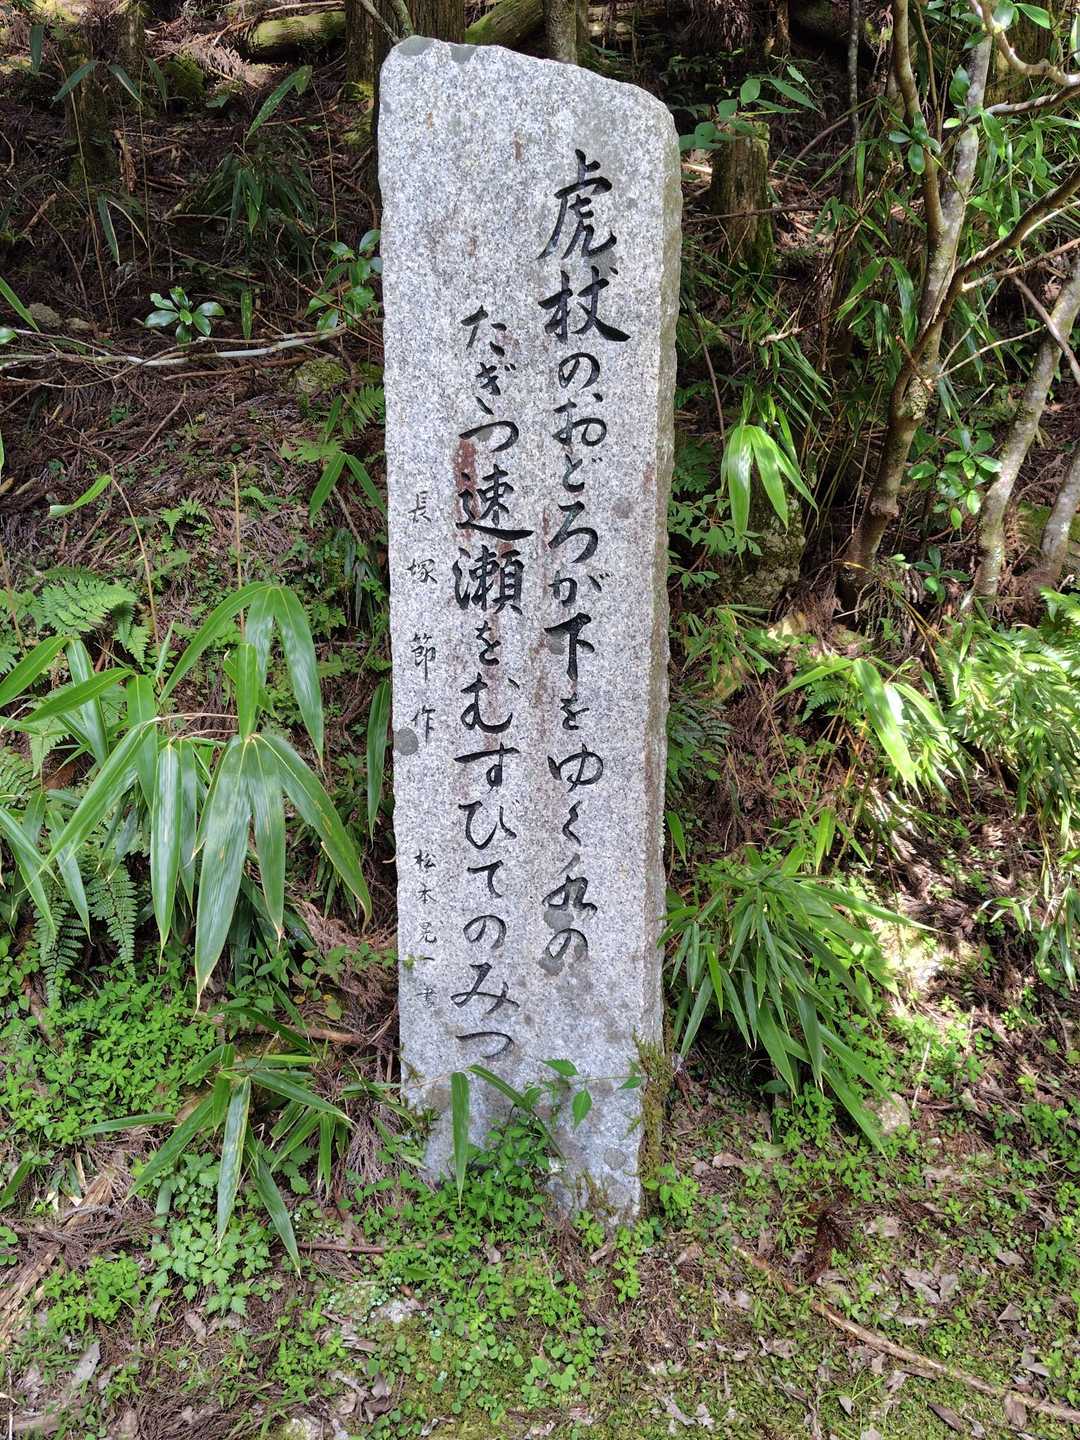 虎杖のおどろが下をゆく水の
たぎつ速瀬をむすびてのみつ
長塚節作 松本晃一書